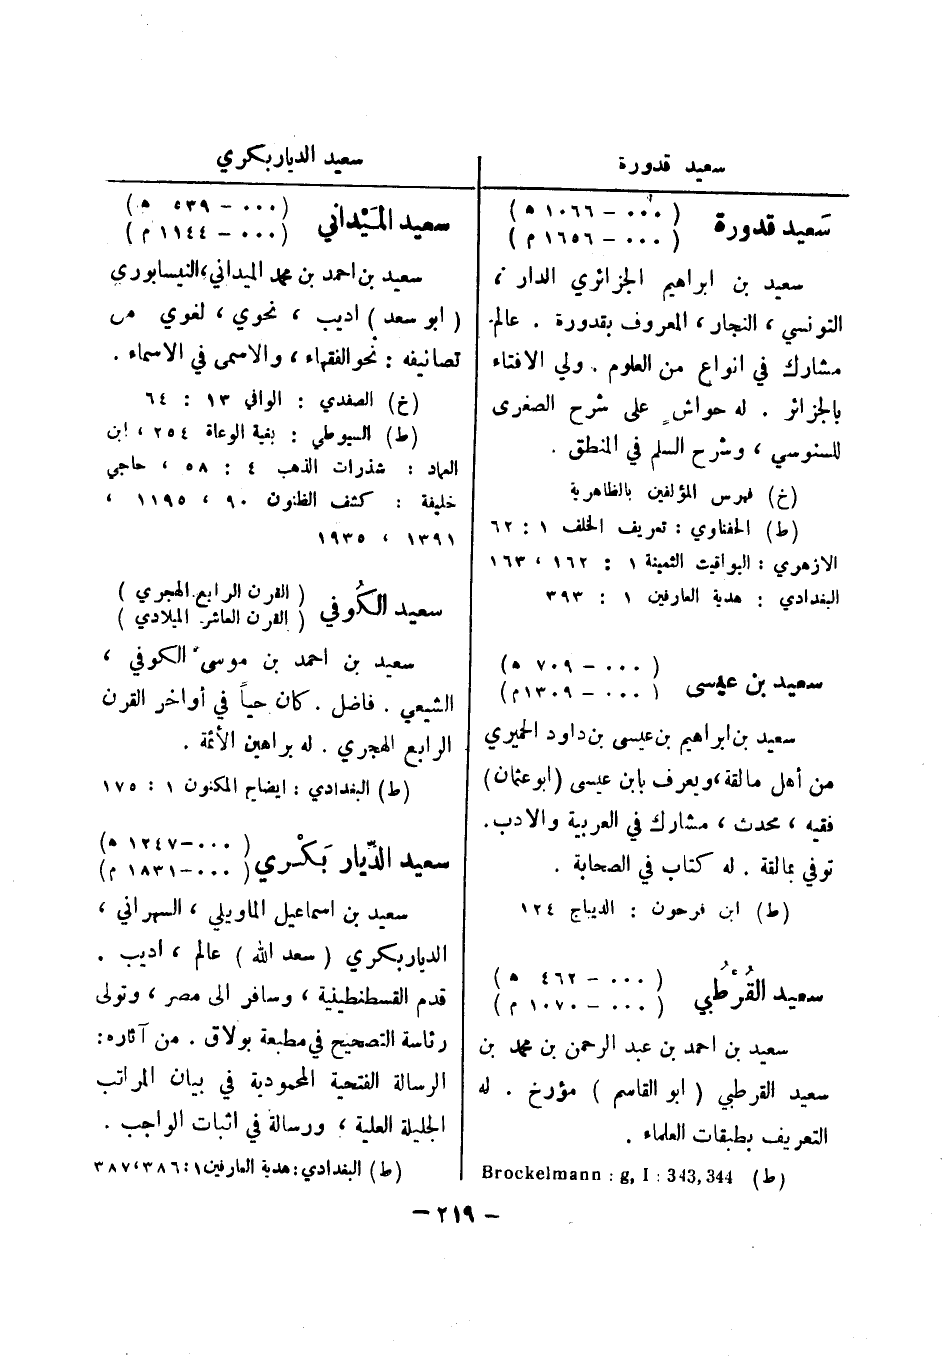 سعيد قدورة
سَعيد قدورة
( ٠٠٠ – ١٠٦٦ ه )
( ٠٠٠ – ١٦٥٦ م )
سعيد بن ابراهيم الجزائري الدار ،
التونسي ، النجار ، المعروف بقدورة . عالم
مشارك في انواع من العلوم . ولي الافتاء
بالجزائر . له حواشٍ على شرح الصغرى
للسنوسي ، وشرح السلم في المنطق .
(خ) فهرس المؤلفين بالظاهرية
(ط) الحفناوي : تعريف الخلف ١ : ٦٢
الازهري : اليواقيت الثمينة ١ : ١٦٢ ، ١٦٣
البغدادي : هدية العارفين ١ : ٣٩٣
سعيد بن عيسى
( ٠٠٠ – ٧٠٩ ه )
( ٠٠٠ – ١٣٠٩ م )
سعيد بن ابراهيم بن عيسى بن داود الحميري
من أهل مالقة ، ويعرف بابن عيسى (ابو عثمان)
فقيه ، محدث ، مشارك في العربية والادب .
توفي بمالقة . له كتاب في الصحابة .
(ط) ابن فرحون : الديباج ١٢٤
سعيد القُرْطُبي
( ٠٠٠ – ٤٦٢ ه )
( ٠٠٠ – ١٠٧٠ م )
سعيد بن احمد بن عبد الرحمن بن محمد بن
سعيد القرطبي ( ابو القاسم ) مؤرخ . له
التعريف بطبقات العلماء .
(ط) Brockelmann : g, I : 343, 344
سعيد الدياربكري
سعيد المَيْداني
( ٠٠٠ – ٥٣٩ ه )
( ٠٠٠ – ١١٤٤ م )
سعيد بن احمد بن محمد الميداني ، النيسابوري
( ابو سعد ) اديب ، نحوي ، لغوي من
تصانيفه : نحو الفقهاء ، والاسمى في الاسماء .
(خ) الصفدي : الوافي ١٣ : ٦٤
(ط) السيوطي : بغية الوعاة ٢٥٤ ، ابن
العماد : شذرات الذهب ٤ : ٥٨ ، حاجي
خليفة : كشف الظنون ٩٠ ، ١١٩٥ ،
١٣٩١ ، ١٩٣٥
سعيد الكُوفي
( القرن الرابع الهجري )
( القرن العاشر الميلادي )
سعيد بن احمد بن موسى الكوفي ،
الشيعي . فاضل . كان حياً في أواخر القرن
الرابع الهجري . له براهين الأئمة .
(ط) البغدادي : ايضاح المكنون ١ : ١٧٥
سعيد الدِّيار بَكْري
( ٠٠٠ – ١٢٤٧ ه )
( ٠٠٠ – ١٨٣١ م )
سعيد بن اسماعيل الماويلي ، السهراني ،
الدياربكري ( سعد الله ) عالم ، أديب .
قدم القسطنطينية ، وسافر الى مصر ، وتولى
رئاسة التصحيح في مطبعة بولاق . من آثاره :
الرسالة الفتحية المحمودية في بيان المراتب
الجليلة العلية ، ورسالة في اثبات الواجب .
(ط) البغدادي : هدية العارفين ١ : ٣٨٦ ، ٣٨٧
– ٢١٩ –